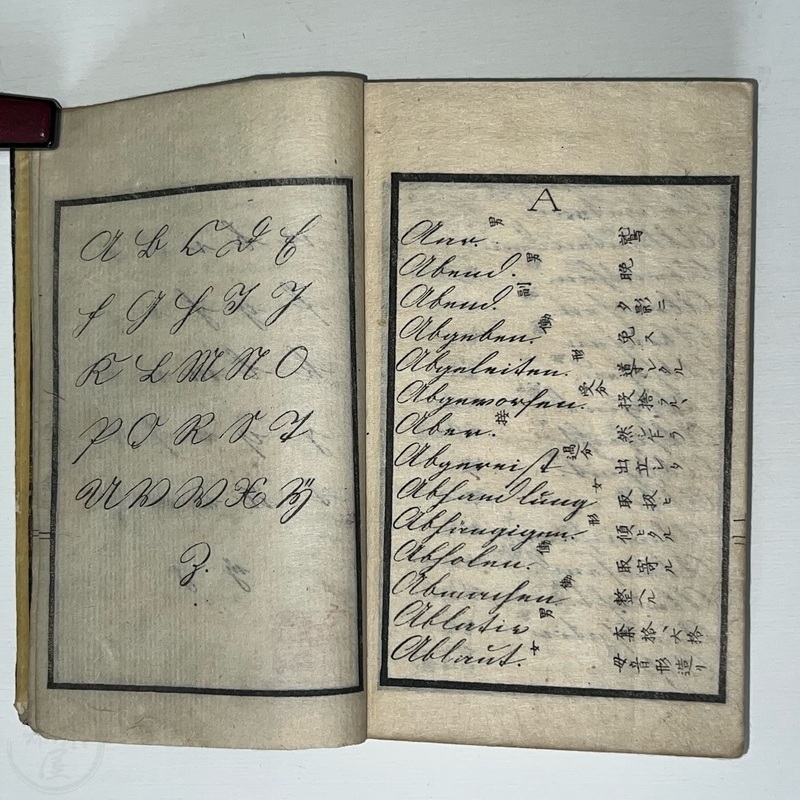 A B C D E
F G H I J
K L M N O
P Q R S T
U V W X Y
Z.
A
Aar. 男 鷲
Abend. 男 晩
Abend. 副 夕影ニ
Abgeben. 働 免ス
Abgeleiten. 形 導レタル
Abgeworfen. 受分 投捨ラル丶
Aber. 接 然シ乍ラ
Abgereist 過分 出立シタ
Abhandlung 女 取扱ヒ
Abhängigen. 形 傾ヒタル
Abholen. 働 取寄ル
Abmachen. 働 整ヘル
Ablativ 男 奪格、大格
Ablaut. 女 母音形造リ